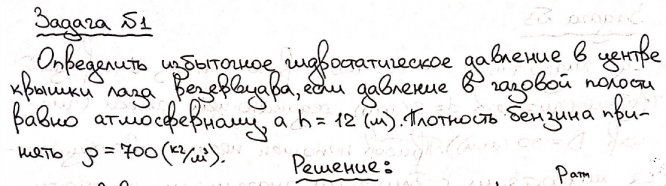 Задача №1
Определить избыточное гидростатическое давление в центре
крышки лаза резервуара, если давление в газовой полости
равно атмосферному, а h = 12 (м). Плотность бензина при-
нять ρ = 700 (кг/м³).
Решение:
Pатм